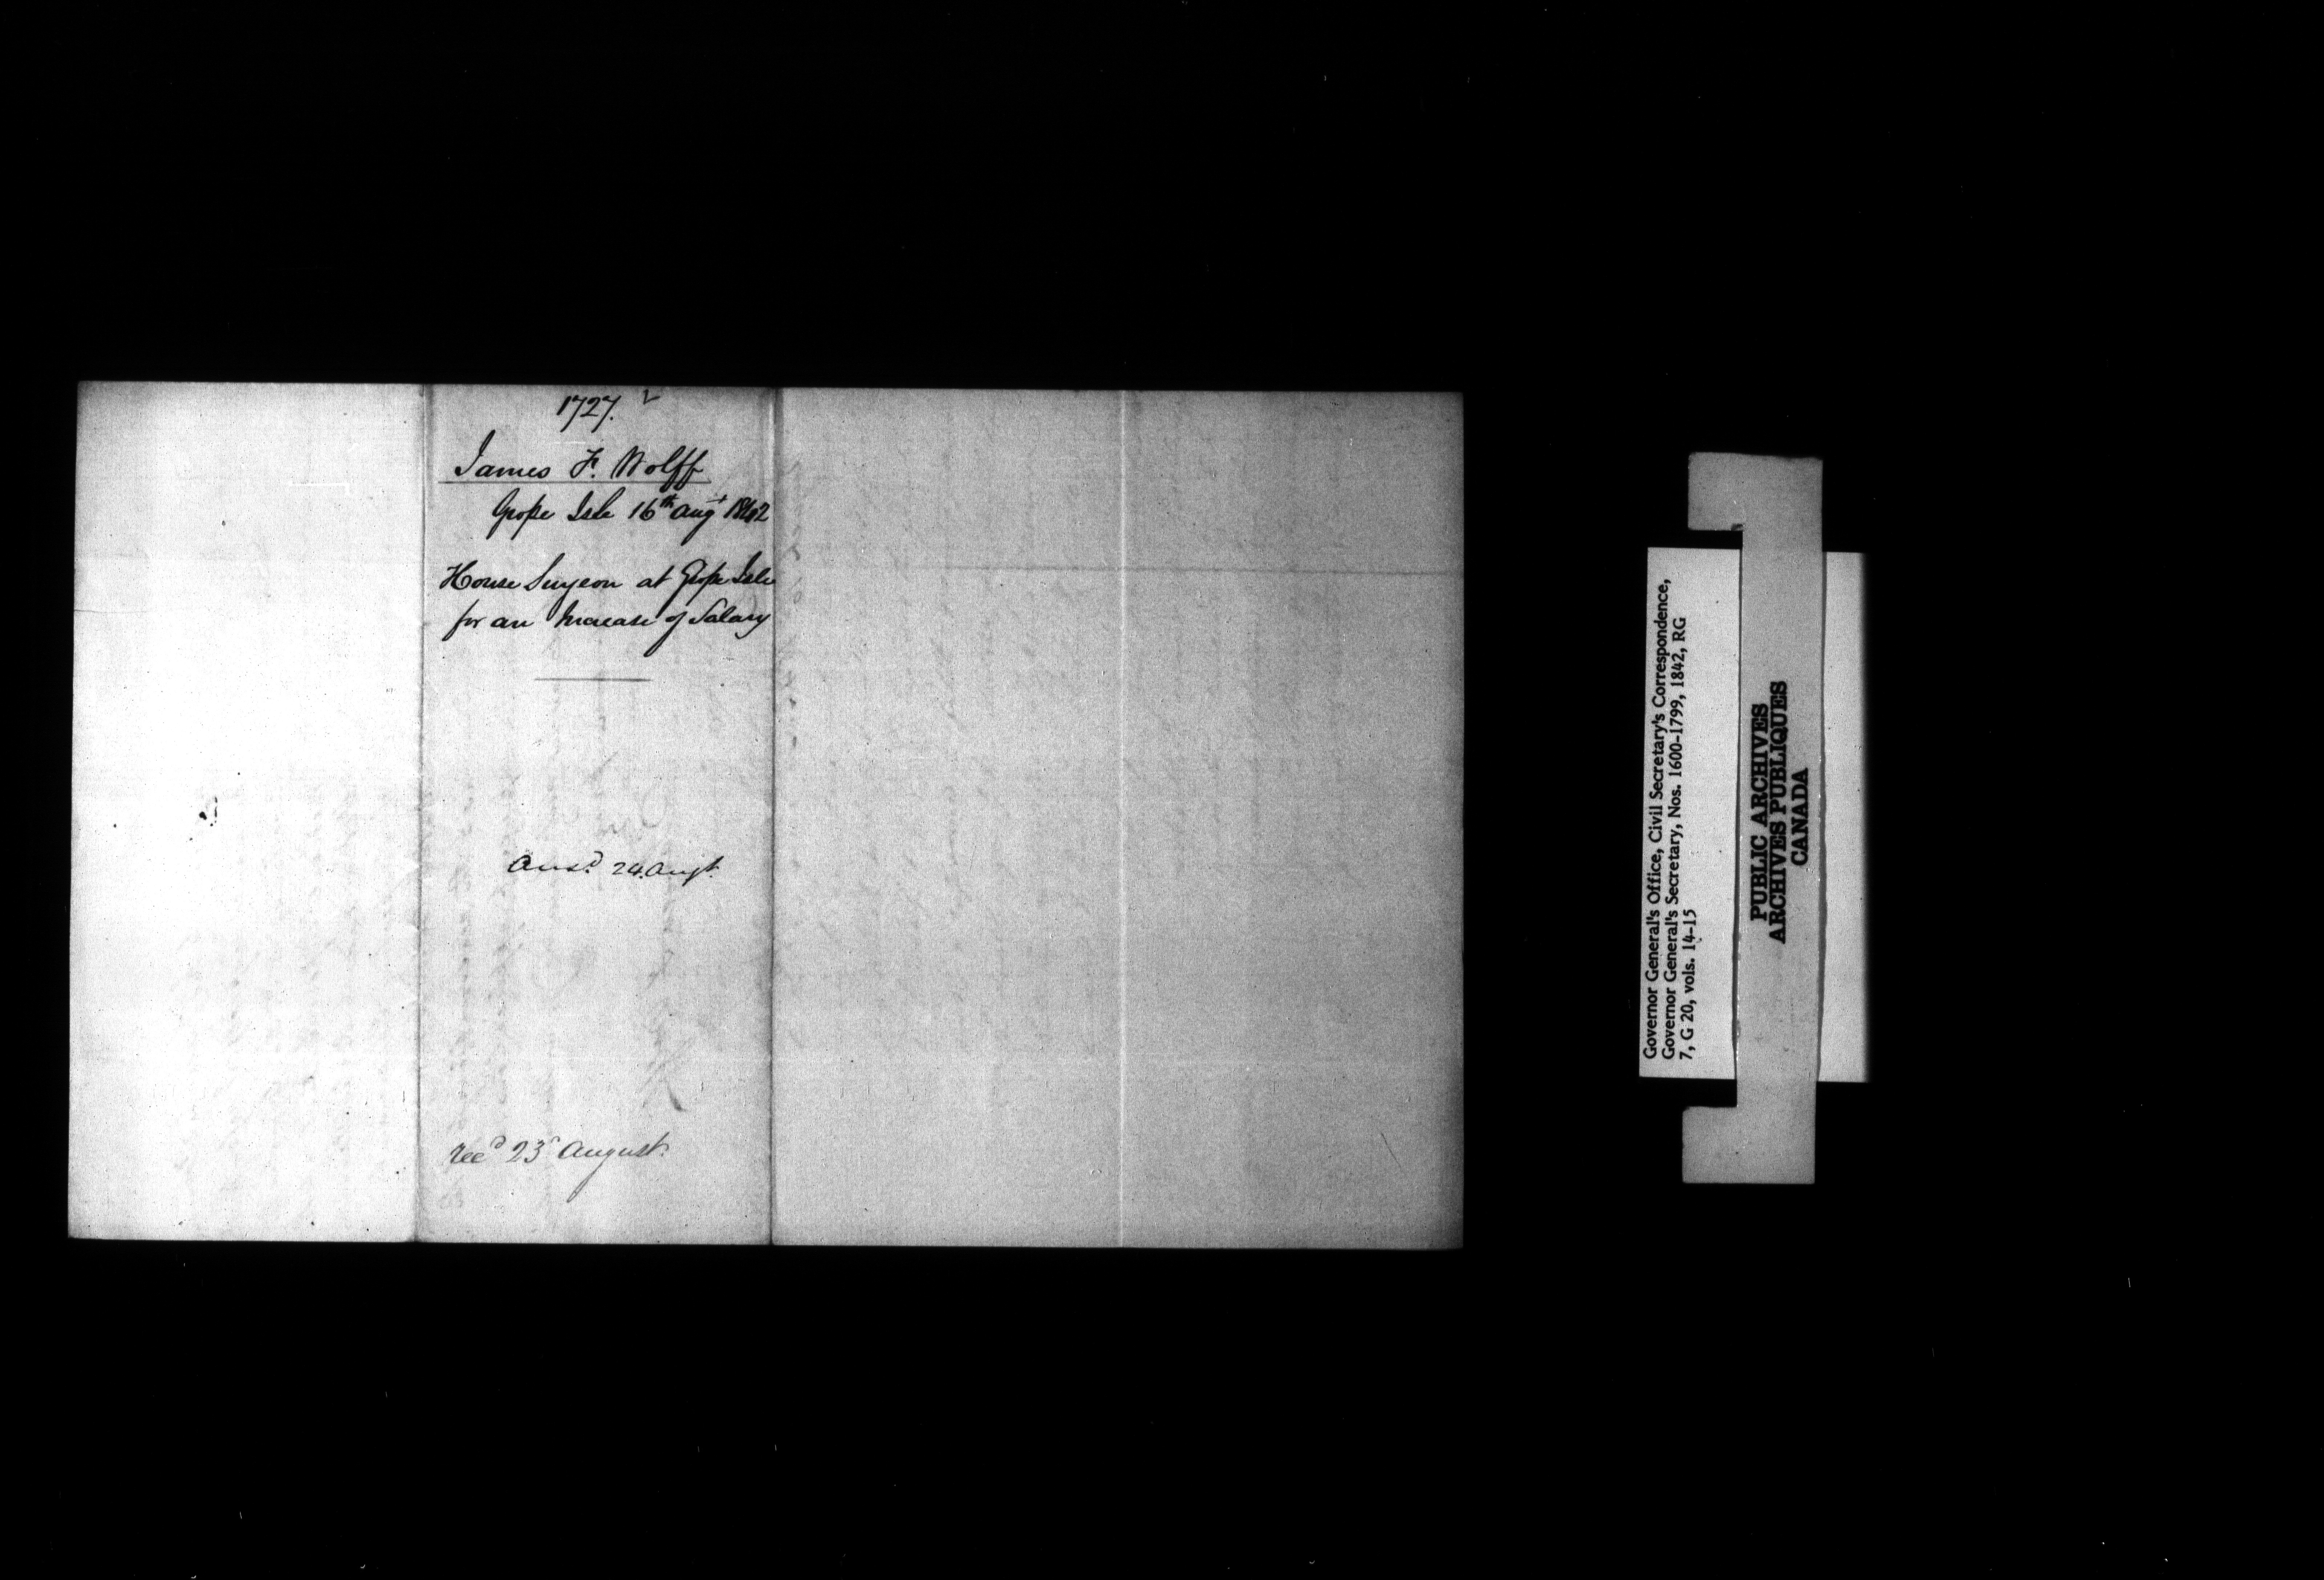 1727.
James F. Wolff
Grosse Isle 16th Augt 1842
House Surgeon at Grosse Isle
for an Increase of Salary
Ansd. 24. Augt.
Recd 23d August.
Governor General's Office, Civil Secretary's Correspondence,
Governor General's Secretary, Nos. 1600-1799, 1842, RG
7, G 20, vols. 14-15
PUBLIC ARCHIVES
ARCHIVES PUBLIQUES
CANADA